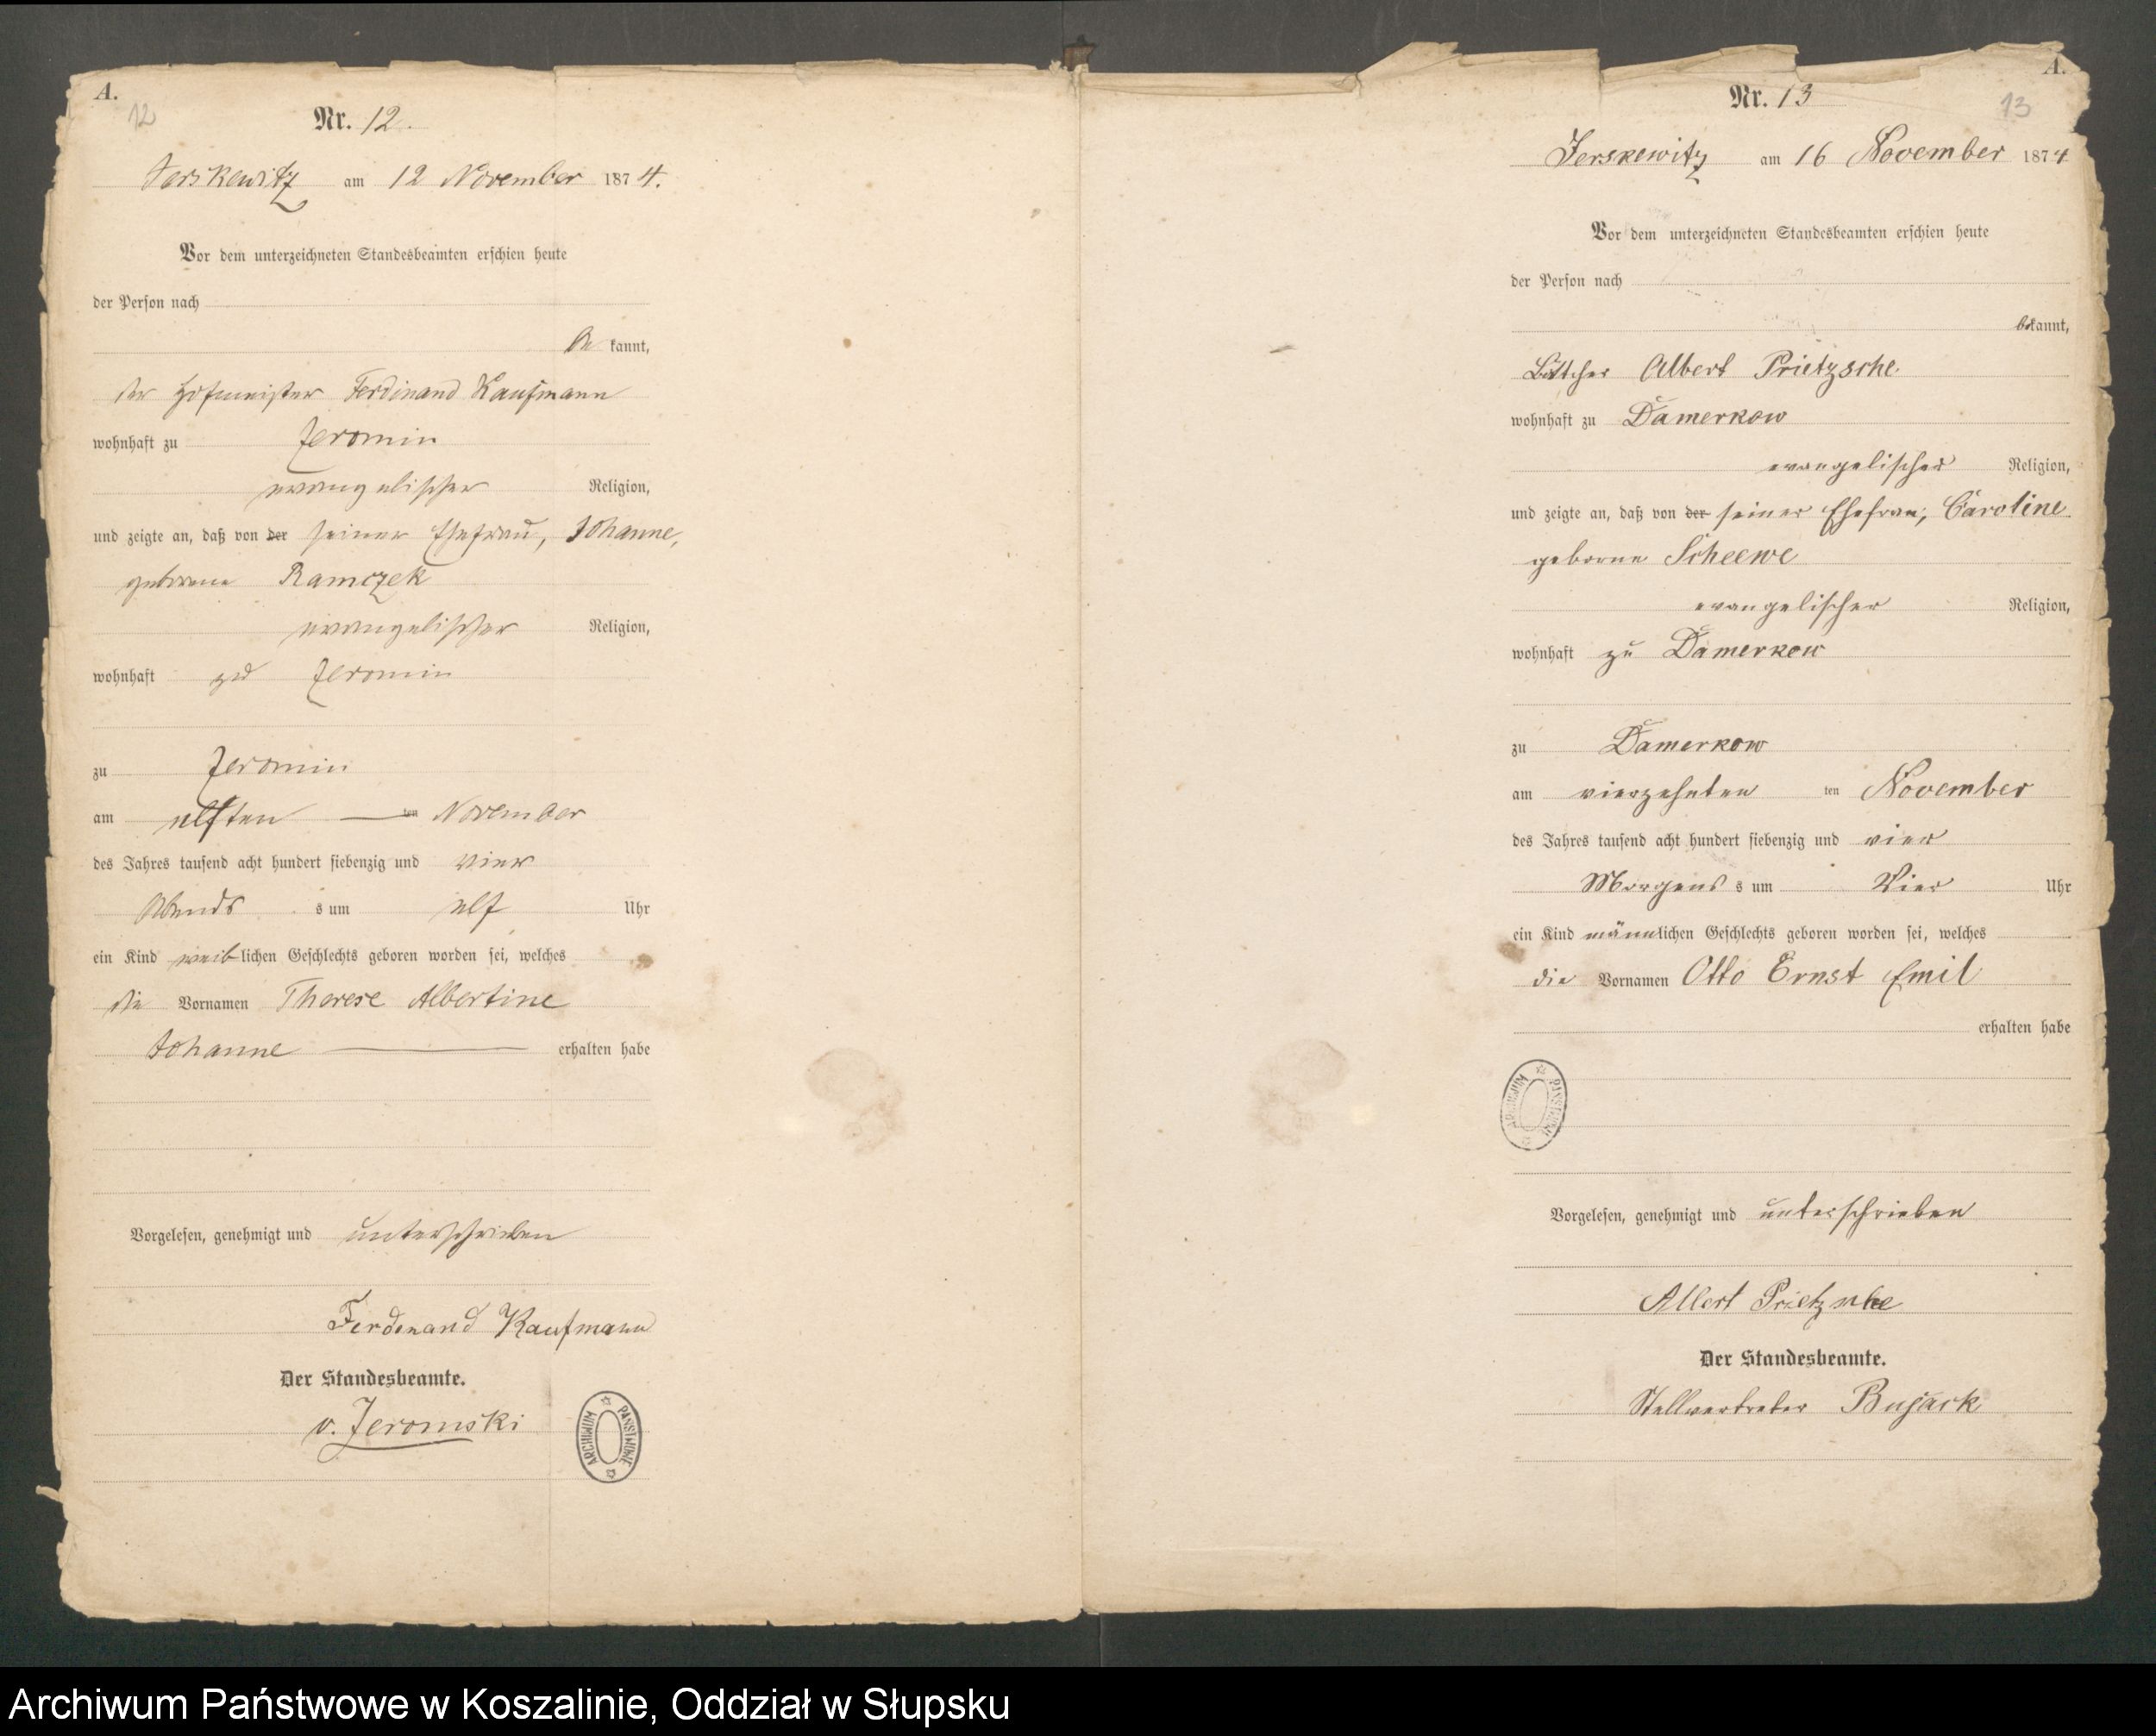 A.
12
Nr. 12.
Jerskewitz am 12 November 1874.
Vor dem unterzeichneten Standesbeamten erschien heute
der Person nach
be kannt,
der Hofmeister Ferdinand Kaufmann
wohnhaft zu Jeromin
evangelischer Religion,
und zeigte an, daß von der seiner Ehefrau, Johanne,
geborene Ramczek
evangelischer Religion,
wohnhaft zu Jeromin
zu Jeromin
am elften ten November
des Jahres tausend acht hundert siebenzig und vier
Abends s um elf Uhr
ein Kind weiblichen Geschlechts geboren worden sei, welches
die Vornamen Therese Albertine
Johanne erhalten habe
Vorgelesen, genehmigt und unterschrieben
Ferdinand Kaufmann
Der Standesbeamte.
v. Jeromski
ARCHIWUM PAŃSTWOWE
A.
13
Nr. 13
Jerskewitz am 16 November 1874
Vor dem unterzeichneten Standesbeamten erschien heute
der Person nach
bekannt,
Böttcher Albert Prietzsche
wohnhaft zu Damerkow
evangelischer Religion,
und zeigte an, daß von der seiner Ehefrau, Caroline
geborne Scheewe
evangelischer Religion,
wohnhaft zu Damerkow
zu Damerkow
am vierzehnten ten November
des Jahres tausend acht hundert siebenzig und vier
Morgens s um Vier Uhr
ein Kind männlichen Geschlechts geboren worden sei, welches
die Vornamen Otto Ernst Emil
erhalten habe
ARCHIWUM PAŃSTWOWE
Vorgelesen, genehmigt und unterschrieben
Albert Prietzsche
Der Standesbeamte.
Stellvertreter Bujack
Archiwum Państwowe w Koszalinie, Oddział w Słupsku